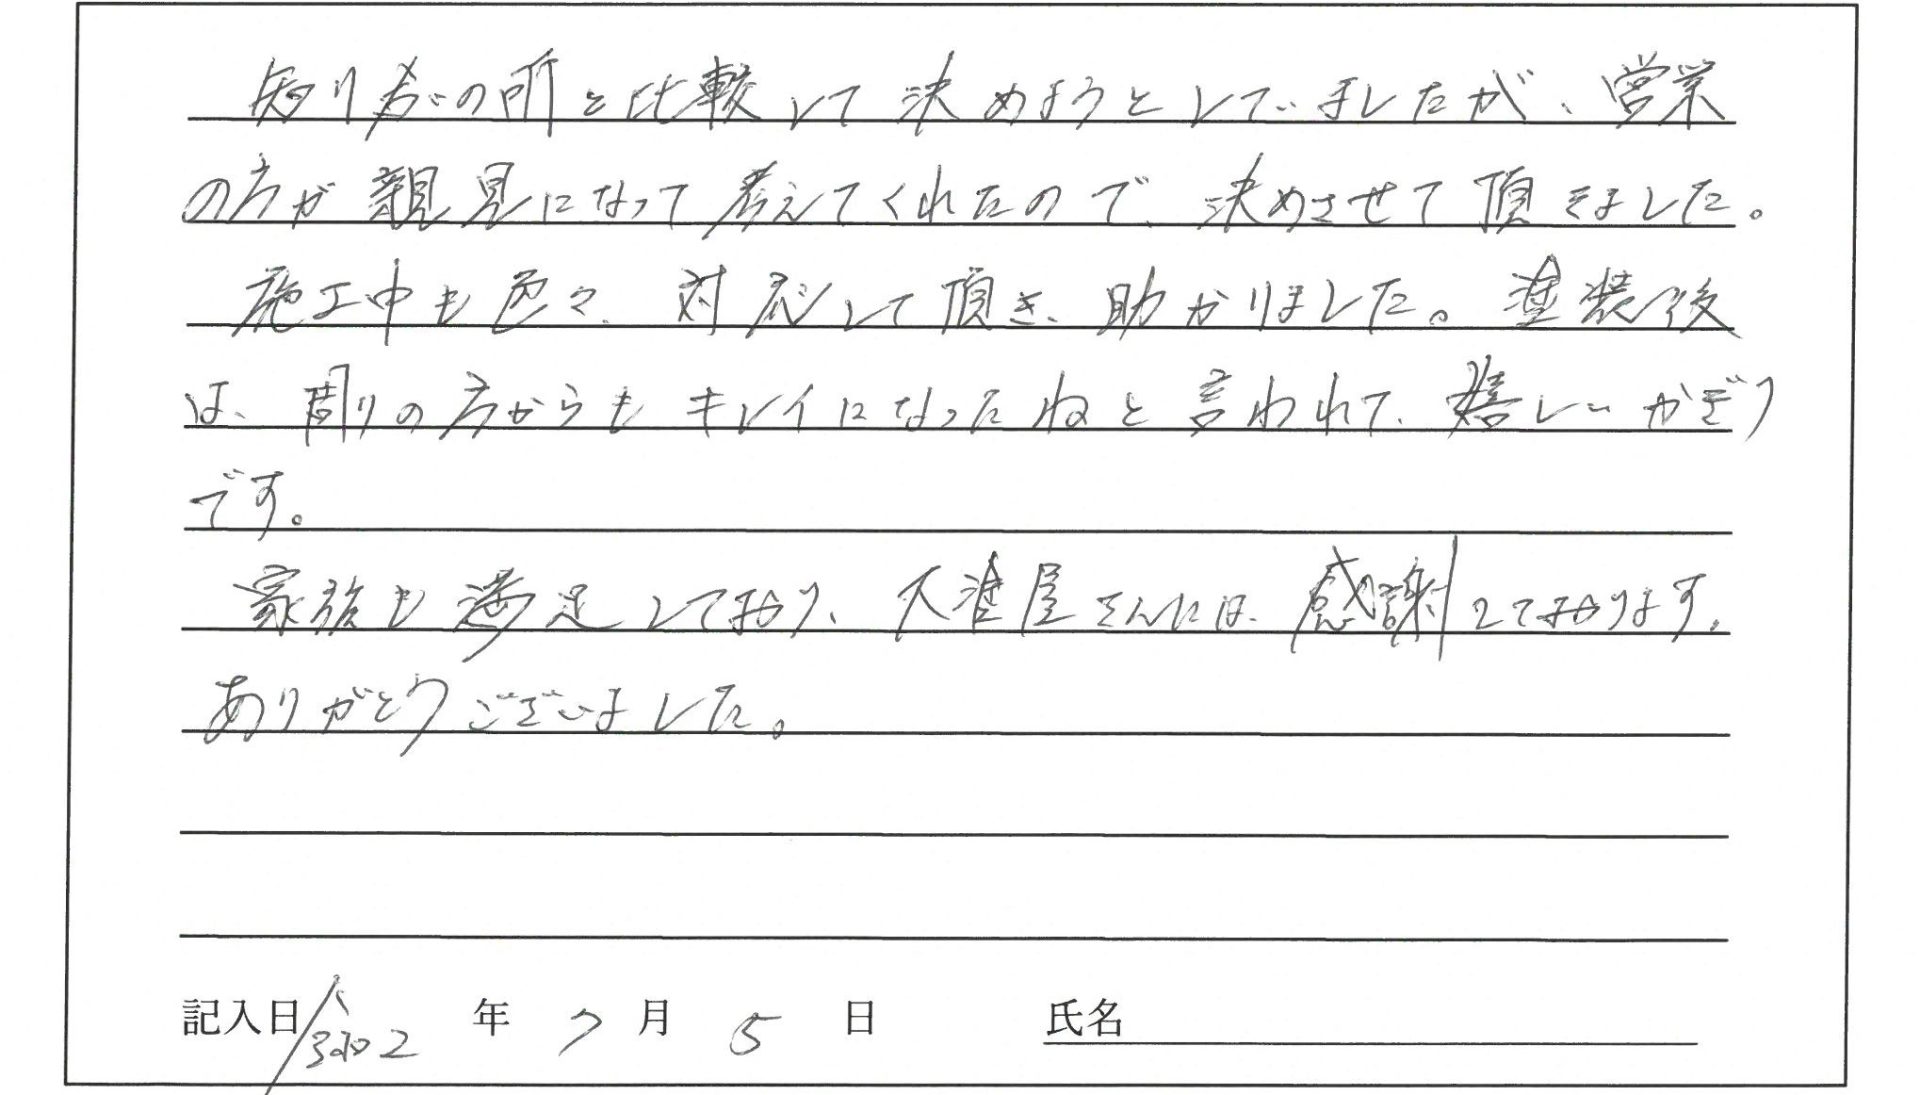 知り の所と比較して決めようとしていましたが、営業
の方が親見になって考えてくれたので、決めさせて頂きました。
施工中も色々、対応して頂き、助かりました。塗装後
は、周りの方からもキレイになったねと言われて、嬉しいかぎり
です。
家族も満足しており、 屋さんには、感謝しております。
ありがとうございました。
記入日 令和2 年 7 月 5 日 氏名